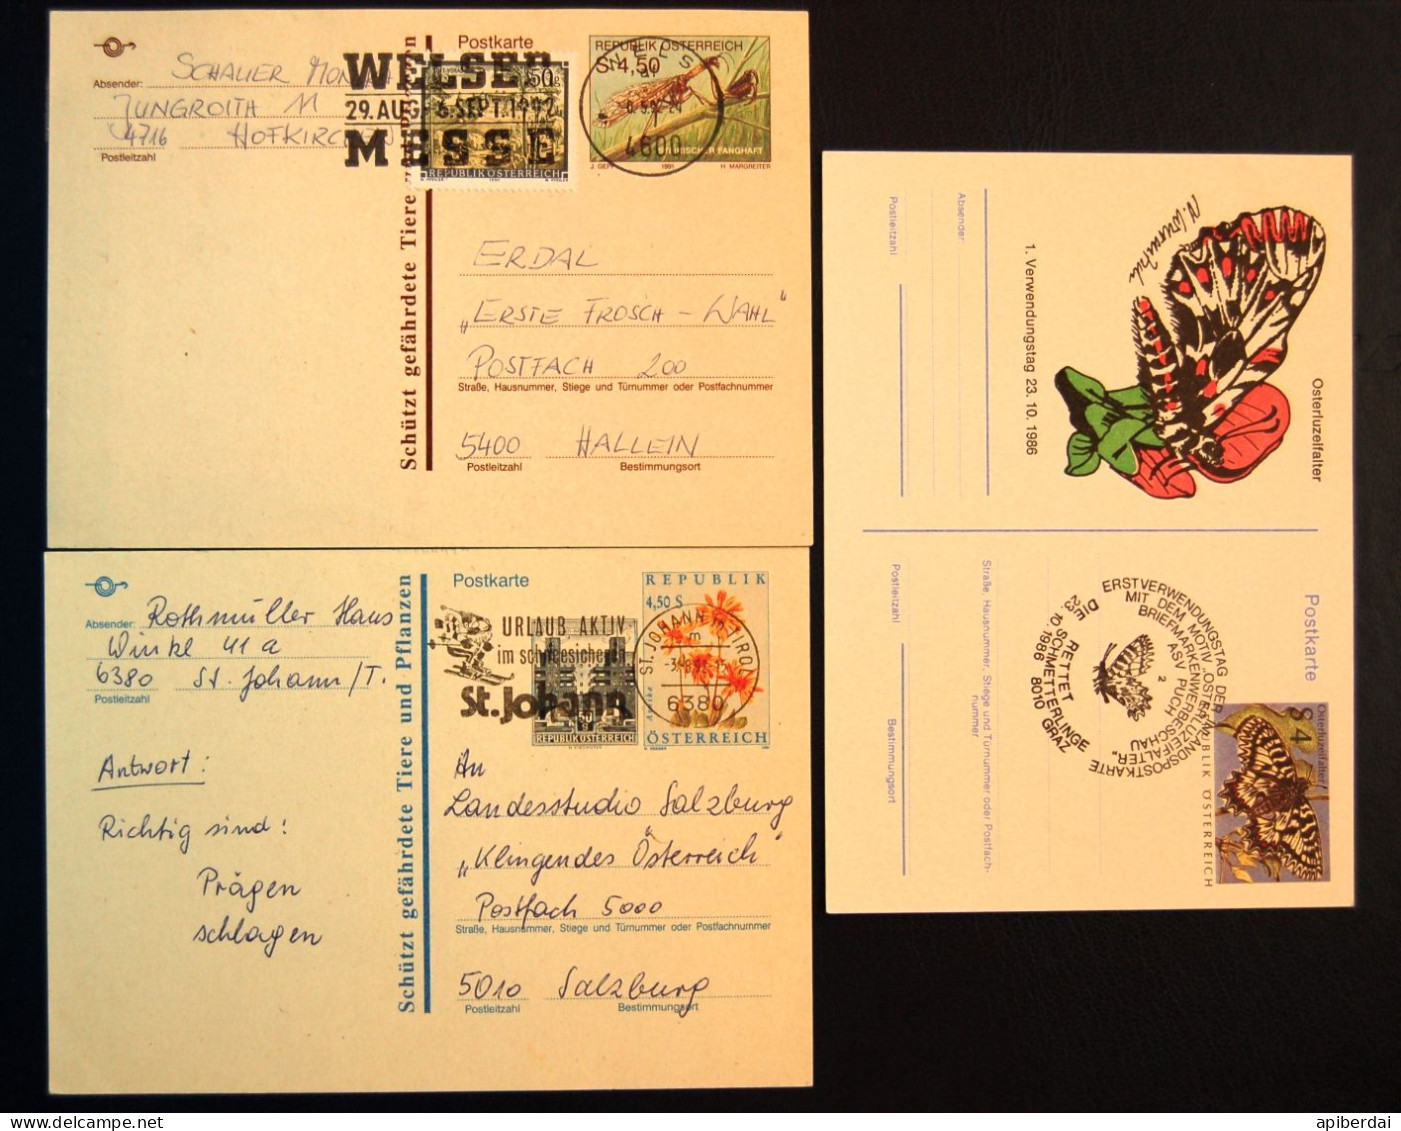 Postkarte
Absender:
SCHAUER
JUNGROITH 11
4716 HOFKIRCHEN
Postleitzahl
WELSER
29. AUG.- 6. SEPT. 1992
MESSE
50g
REPUBLIK ÖSTERREICH
REPUBLIK ÖSTERREICH
S 4,50
WELS
4600
FANGHAFT
1991
H. MARGREITER
Schützt gefährdete Tiere
ERDAL
„ERSTE FROSCH - WAHL"
POSTFACH 200
Straße, Hausnummer, Stiege und Türnummer oder Postfachnummer
5400 HALLEIN
Postleitzahl Bestimmungsort
Postkarte
Absender:
Rothmüller Hans
Winkl 41 a
6380 St. Johann/T.
Postleitzahl
Antwort:
Richtig sind:
Prägen
schlagen
Schützt gefährdete Tiere und Pflanzen
URLAUB AKTIV
im schneesicheren
St. Johann
REPUBLIK ÖSTERREICH
REPUBLIK
4,50 S
ÖSTERREICH
ST. JOHANN in TIROL
m
6380
An
Landesstudio Salzburg
„Klingendes Österreich"
Postfach 5000
Straße, Hausnummer, Stiege und Türnummer oder Postfachnummer
5010 Salzburg
Postleitzahl Bestimmungsort
Osterluzeifalter
1. Verwendungstag 23. 10. 1986
Absender:
Postleitzahl
Postkarte
Osterluzeifalter
S 4
REPUBLIK ÖSTERREICH
ERSTVERWENDUNGSTAG DER INLANDSPOSTKARTE
MIT DEM MOTIV „OSTERLUZEIFALTER"
BRIEFMARKENWERBESCHAU
ASV PUCH
2
DIE RETTET
SCHMETTERLINGE
23.10.1986 8010 GRAZ
Straße, Hausnummer, Stiege und Türnummer oder Postfach-
nummer
Postleitzahl Bestimmungsort
apiberdai / delcampe.net